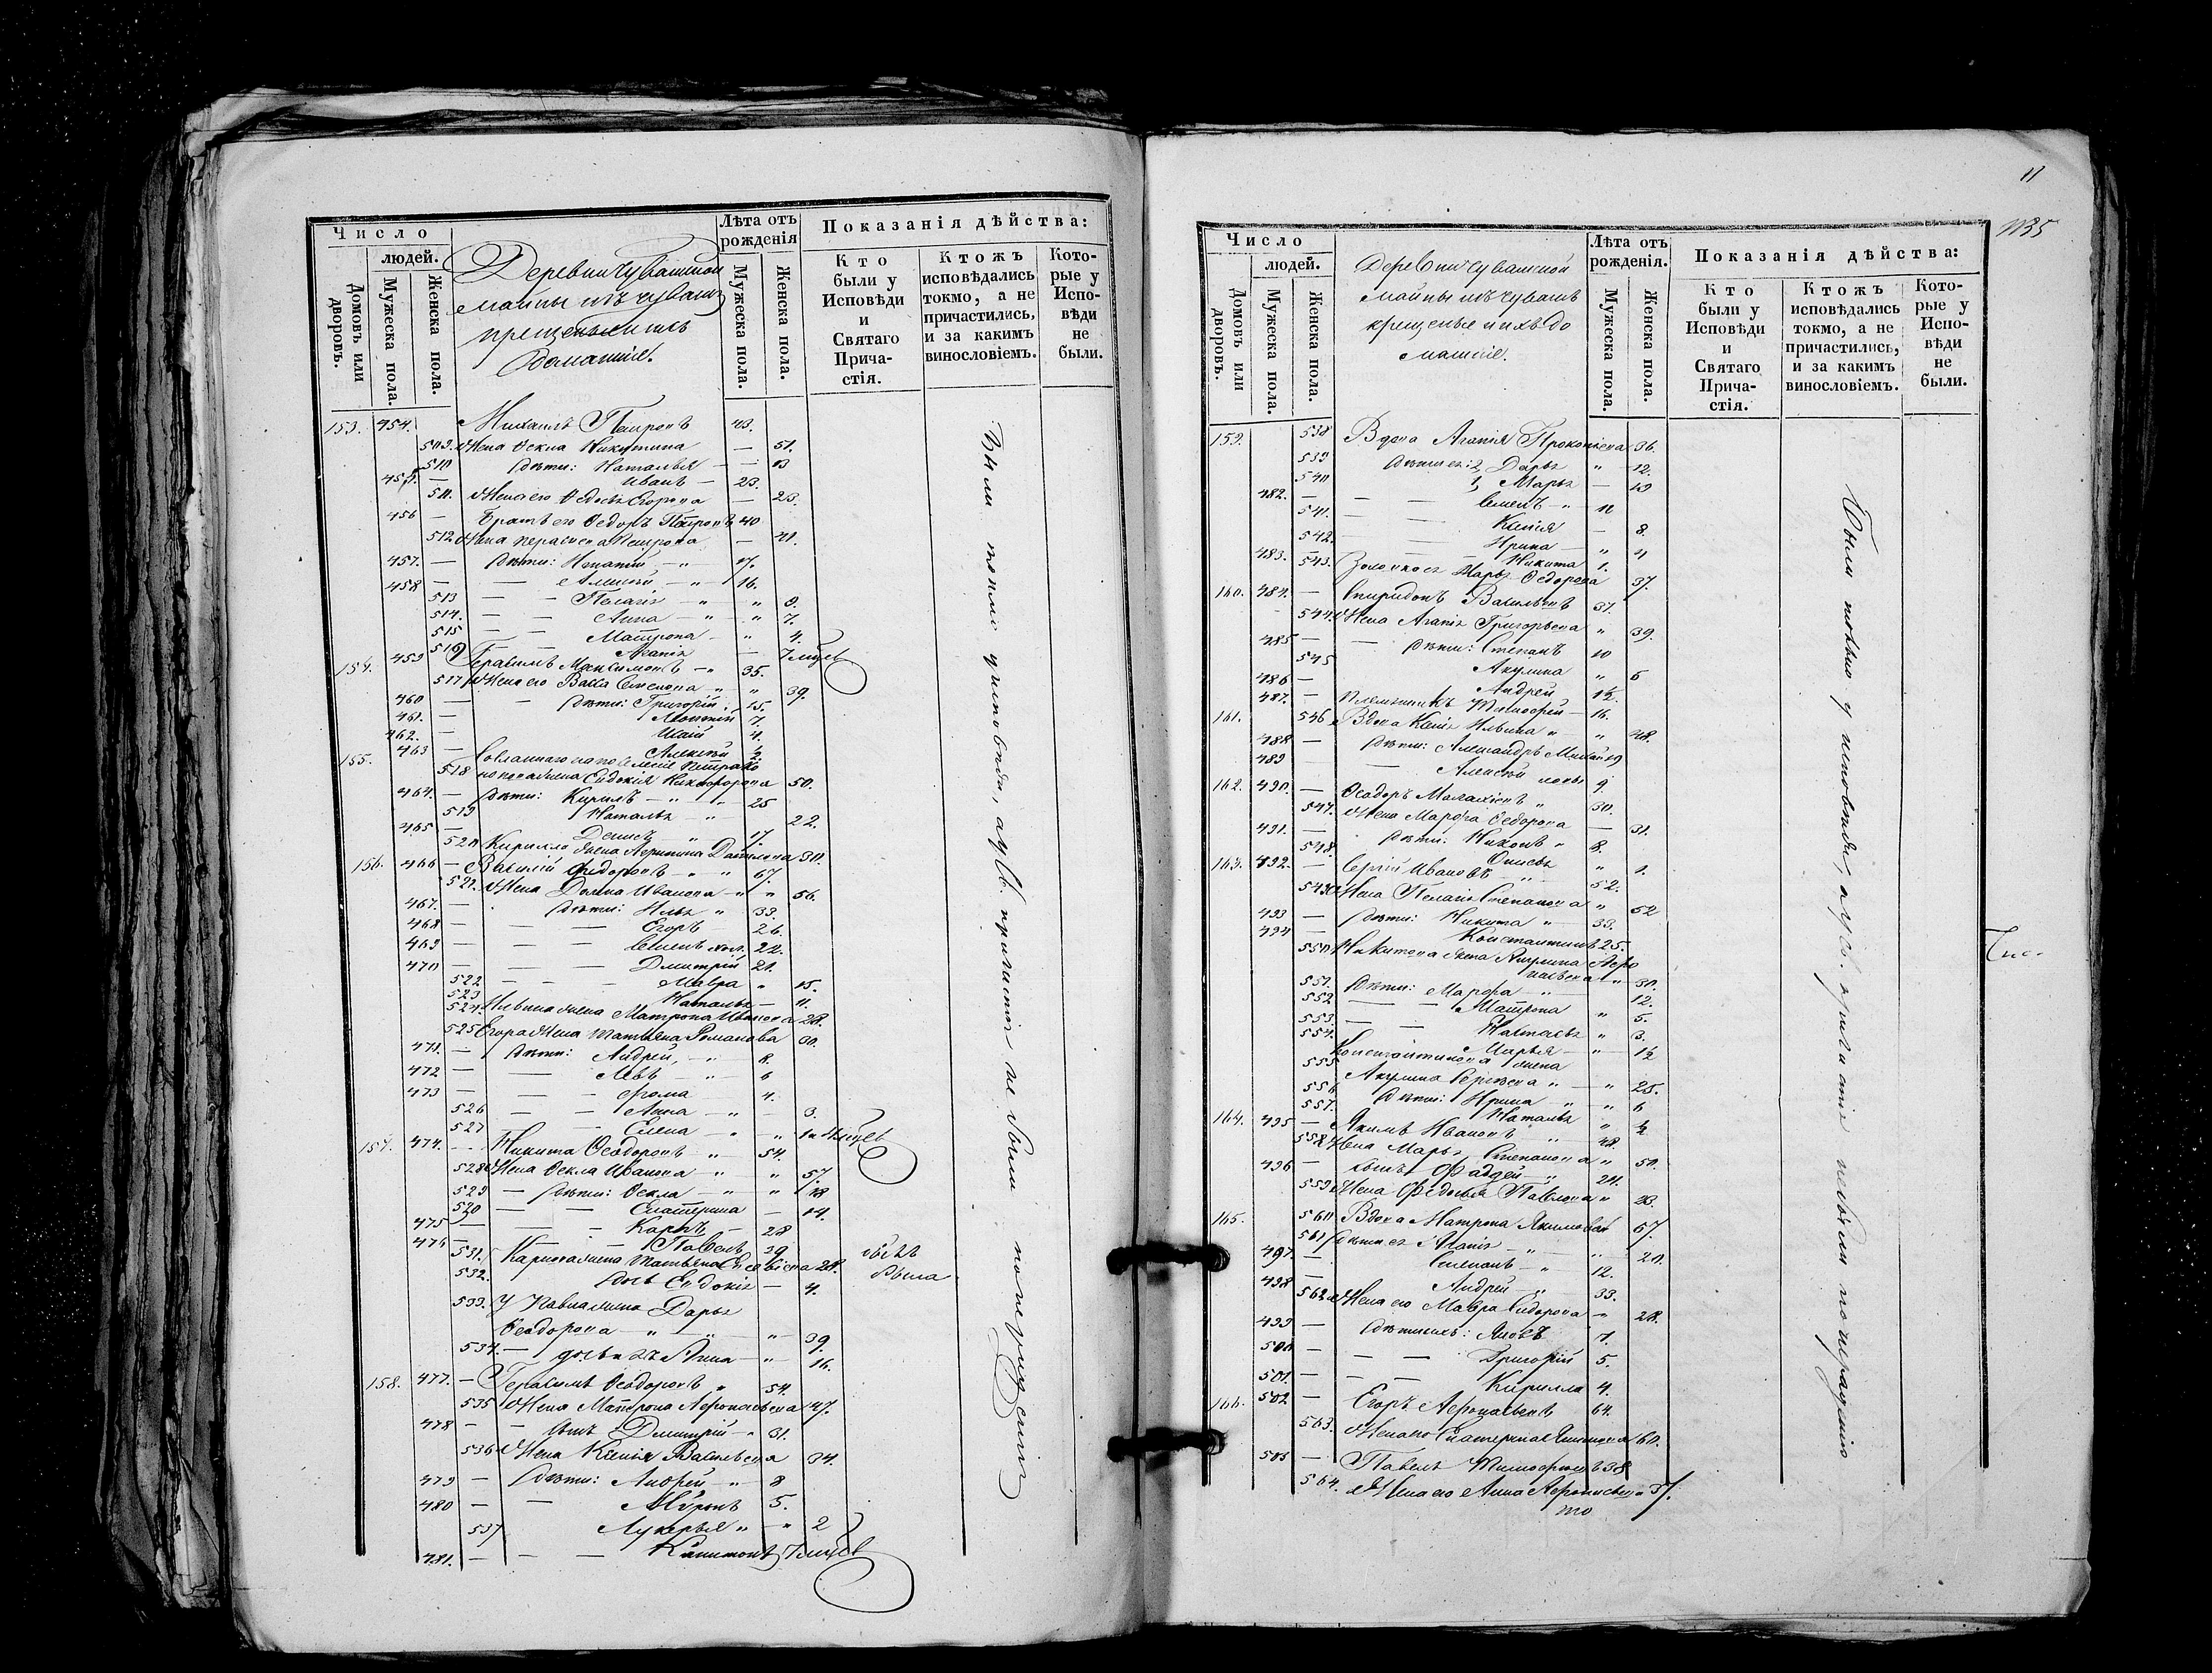 Число
людей.
Домовъ или дворовъ.
Мужеска пола.
Женска пола.
Деревни Чувашской
Майны изъ чувашъ
крещеные и ихъ
домашніе.
Лѣта отъ рожденія
Мужеска пола.
Женска пола.
Показанія дѣйства:
Кто были у Исповѣди и Святаго Причастія.
Ктожъ исповѣдались токмо, а не причастились, и за какимъ винословіемъ.
Которые у Исповѣди не были.
153. 454. Михаилъ Петровъ 43.
509. Жена Ѳекла Никитина — 51.
510 Дѣти: Наталья — 13
455. — Иванъ — 23.
511. Жена его Ѳедосья Егорова — 23.
456 — Братъ его Ѳедоръ Петровъ 40
512 Жена Петрова — 41.
457. — Дѣти: Игнатій — 17.
458 — Алексѣй — 16.
513 — Пелагія — " 9.
514. — Анна — " 7.
515 — Матрона — " 4.
516 Агапія — 7 мѣсяц
154. 459 Герасимъ Максимовъ — 35.
517 Жена его Васса Семенова " 39.
460 — Дѣти: Григорій 15.
461. — Леонтій 7.
462. — Исай 4.
463 — Алексѣй ½
155. Сосланнаго на поселеніе Петра
518 жена Евдокія Никифорова 50.
464. — Дѣти: Кирилъ — " 25
519 Наталья — " 22.
465 — Денисъ " 17.
520 Кирилла жена Агрипина Данилова 30.
156. 466 — Василій Ѳедоровъ " 67.
521. Жена Домна Иванова — " 56.
467. — Дѣти: Илья " 33.
468 — Егоръ — 26.
469 — Семенъ хол. 22.
470 — Дмитрій 21.
522 — Мавра " 15.
523 Наталья — 11.
524 Ильина жена Матрона Иванова 28.
525 Егора жена Татьяна Романова 30.
471. — Дѣти: Андрей, — " 8.
472 — Левъ — " 6
473 — Фома — 4.
526 — Анна — " — 3.
527 — Елена — " "
157. 474. Никита Ѳеодоровъ " 54.
528 Жена Ѳекла Иванова " " 57.
529 — Дѣти: Ѳекла — " " 18
530 — Екатерина — 14.
475 — Карпъ — 28
476 — Павелъ 39
531. Карпа жена Татьяна 28.
532. дочь Евдокія — 4.
533. У Павла жена Дарья
Ѳеодорова " — " 39
534. — дочь ихъ Анна — " 16.
158. 477. — Герасимъ Ѳеодоровъ " 54.
535 Жена Матрона Афонасьева 47.
478 — сынъ Дмитрій — 31.
536 Жена Ксенія Васильева 34.
479 — Дѣти: Андрей — " 8
480 — Миронъ 5.
537 Лукерья " — " 2
481. — Капитонъ 7 мѣсяц
Были токмо у исповѣди, а у св. причастія не были по нерадѣнію
11
1135
Число
людей.
Домовъ или дворовъ.
Мужеска пола.
Женска пола.
Деревни Чувашской
Майны изъ чувашъ
крещеные и ихъ до
машніе.
Лѣта отъ рожденія.
Мужеска пола.
Женска пола.
Показанія дѣйства:
Кто были у Исповѣди и Святаго Причастія.
Ктожъ исповѣдались токмо, а не причастились, и за какимъ винословіемъ.
Которые у Исповѣди не были.
159. 538 Вдова Агапія Прокопьева 36.
539 Дѣти ея: 2, Дарья " — 12.
540 1, Марья — 19
482. — Семенъ — " 11
541. — Ксенія — 8.
542. — Ирина — " 4
483. — Никита 1.
543. Марья Ѳедорова 37.
160. 484. — Спиридонъ Васильевъ 37.
544. Жена Агапія Григорьева " 39.
485 — Дѣти: Степанъ 10
545 Акулина " 6
486 — Андрей 1½
487. — Племянникъ Тимофей — 16.
161. 546 Вдова Ксенія Ильина " " 48.
488 — Дѣти: Александръ 19
489 — Алексѣй 9
162. 490. — Ѳеодоръ Малахіевъ " 30.
547. Жена Марфа Ѳедорова — 31.
491. — Дѣти: Никонъ " 8.
548. Онисья " 1.
163. 492. — Сергій Ивановъ — " 52.
549 Жена Пелагія Степанова " 52
493 — Дѣти: Никита " 33.
494 — Константинъ 25.
550 Никитона жена Акулина Афо
насьева " 30.
551. Дѣти: Марфа — " 12.
552 — Матрона " 5.
553. — Настасья " 3.
554. — Марья — " 1½
555 Константинова жена
Акулина Сергѣева " — " 25.
556 Дѣти: Ирина " " 6
557. Наталья " ½
164. 495 — Якимъ Ивановъ " 48.
558 Жена Марья Степанова " 50.
496 — сынъ Фаддей " 24.
559 Жена Ѳедосья Павлова " 23.
165. 560 Вдова Матрона Якимова 67.
561 Дѣти ея Агапія — " " 20.
497. — Степанъ — " 12.
498 — Андрей — " 33.
562 Жена его Мавра Сидорова — " 28.
499 — Дѣти ихъ: Яковъ 7.
500 — Григорій 5.
501. — Кирилла 4.
166. 502 — Егоръ Афонасьевъ 64.
563. Жена его Екатерина 60.
503 — Павелъ Тимофеевъ 38
564. Жена его Анна Афонасьева 37.
Были токмо у исповѣди, а у св. причастія не были по нерадѣнію